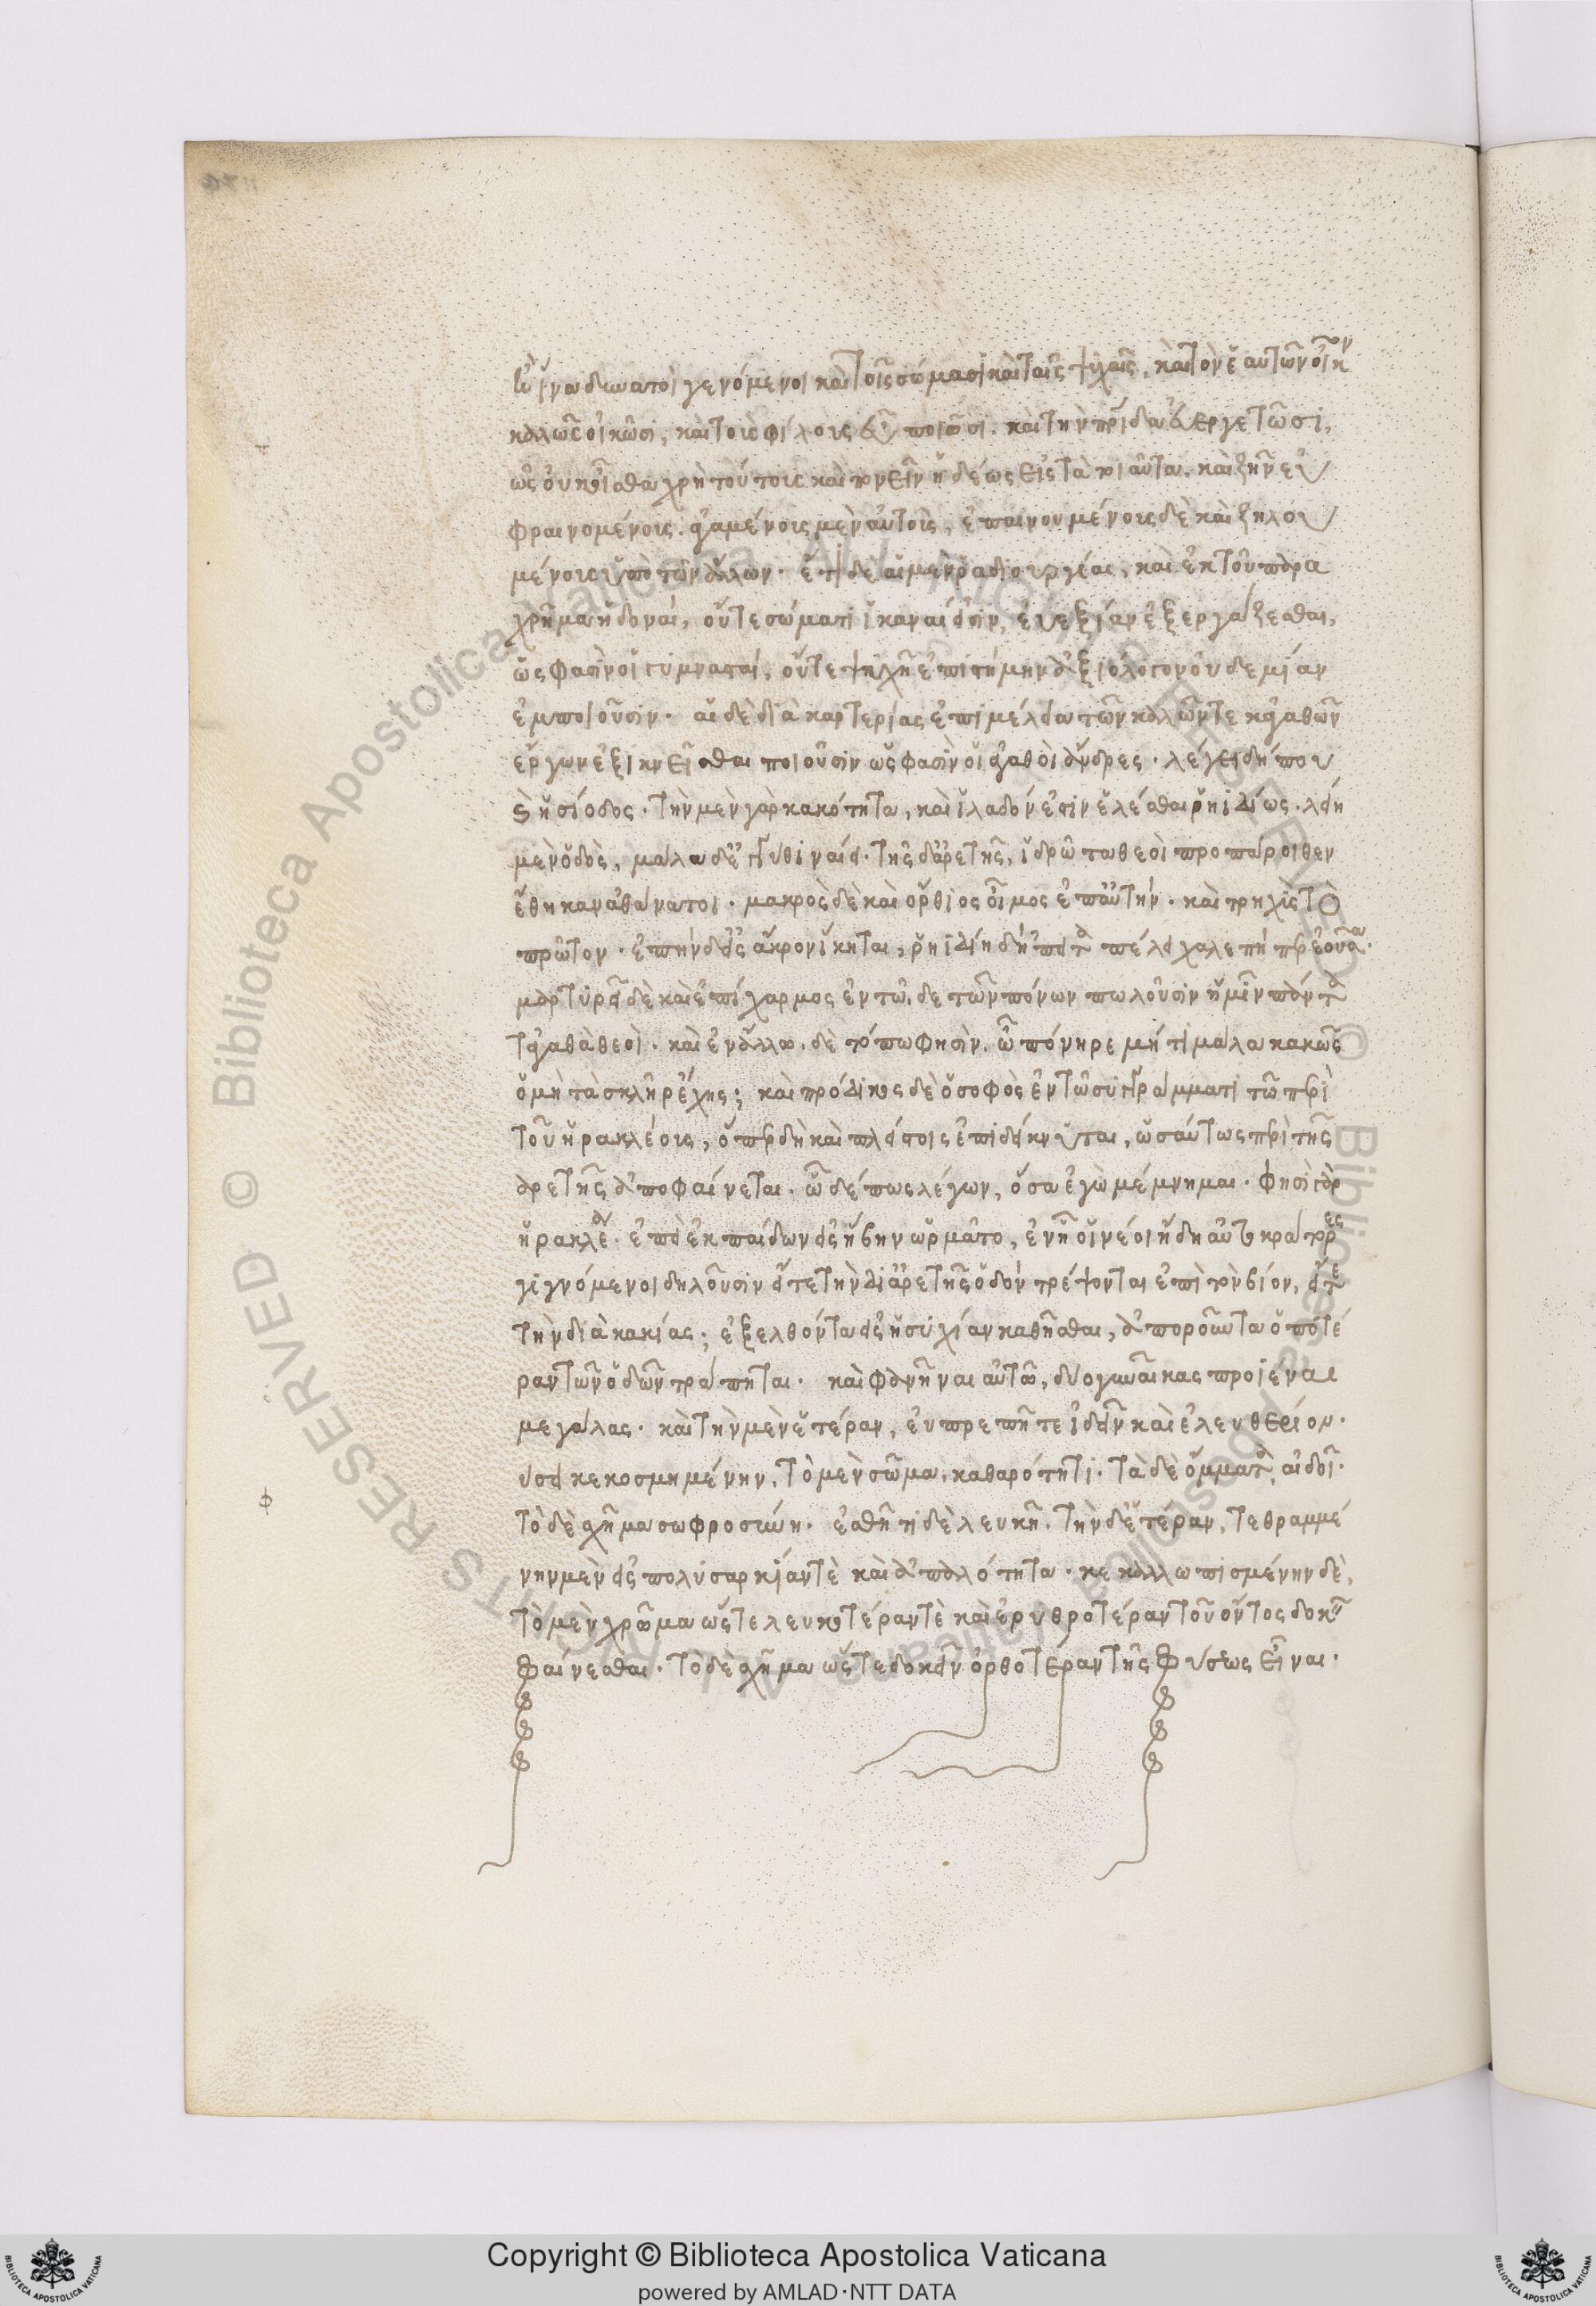 ἢ ἵνα δυνατοὶ γενόμενοι καὶ τοῖς σώμασι καὶ ταῖς ψυχαῖς, καὶ τὸν ἑαυτῶν οἶκον
καλῶς οἰκῶσι, καὶ τοὺς φίλους εὖ ποιῶσι. καὶ τὴν πατρίδα εὐεργετῶσι,
πῶς οὐκ οἴεσθαι χρὴ τούτους καὶ πονεῖν ἡδέως εἰς τὰ τοιαῦτα. καὶ ζῆν εὐ
φραινομένους. ἀγαμένους μὲν αὑτοὺς, ἐπαινουμένους δὲ καὶ ζηλου
μένους ὑπὸ τῶν ἄλλων. ἔτι δὲ αἱ μὲν ῥαδιουργίαι, καὶ ἐκ τοῦ παρα
χρῆμα ἡδοναί, οὔτε σώματι ἱκαναί εἰσιν, εὐεξίαν ἐξεργάζεσθαι,
ὥς φασιν οἱ γυμνασταί, οὔτε ψυχῇ ἐπιστήμην ἀξιόλογον οὐδεμίαν
ἐμποιοῦσιν. αἱ δὲ διὰ καρτερίας ἐπιμέλειαι τῶν καλῶν τε κἀγαθῶν
ἔργων ἐξικνεῖσθαι ποιοῦσιν ὥς φασιν οἱ ἀγαθοὶ ἄνδρες. λέγει δή που
καὶ ἡσίοδος. τὴν μὲν γὰρ κακότητα, καὶ ἰλαδόν ἐστιν ἑλέσθαι ῥηιδίως. λείη
μὲν ὁδὸς, μάλα δ' ἐγγύθι ναίει. τῆς δ' ἀρετῆς, ἱδρῶτα θεοὶ προπάροιθεν
ἔθηκαν ἀθάνατοι. μακρὸς δὲ καὶ ὄρθιος οἶμος ἐπ' αὐτήν. καὶ τρηχὺς τὸ
πρῶτον. ἐπὴν δ' εἰς ἄκρον ἵκηται, ῥηιδίη δὴ ἔπειτα πέλει χαλεπή περ ἐοῦσα.
μαρτυρεῖ δὲ καὶ ἐπίχαρμος ἐν τῶδε τῶν πόνων πωλοῦσιν ἡμῖν πάντα
τἀγαθὰ θεοί. καὶ ἐν ἄλλω δὲ τόπω φησίν. ὦ πόνηρε μή τι μάλα κακῶς
ὃ μὴ τὰ σκλῆρ' ἔχης; καὶ πρόδικος δὲ ὁ σοφὸς ἐν τῶ συγγράμματι τῶ περὶ
τοῦ ἡρακλέους, ὅπερ δὴ καὶ πλείστοις ἐπιδείκνυται, ὡσαύτως περὶ τῆς
ἀρετῆς ἀποφαίνεται. ὧδέ πως λέγων, ὅσα ἐγὼ μέμνημαι. φησὶ γὰρ
ἡρακλέα. ἐπεὶ ἐκ παίδων εἰς ἥβην ὡρμᾶτο, ἐν ᾗ οἱ νέοι ἤδη αὐτοκράτορες
γιγνόμενοι δηλοῦσιν εἴτε τὴν δι' ἀρετῆς ὁδὸν τρέψονται ἐπὶ τὸν βίον, εἴτε
τὴν διὰ κακίας; ἐξελθόντα εἰς ἡσυχίαν καθῆσθαι, ἀποροῦντα ὁποτέ
ραν τῶν ὁδῶν τράπηται. καὶ φανῆναι αὐτῶ, δύο γυναῖκας προιέναι
μεγάλας. καὶ τὴν μὲν ἑτέραν, εὐπρεπῆ τε ἰδεῖν καὶ ἐλευθέριον.
φύσει κεκοσμημένην, τὸ μὲν σῶμα, καθαρότητι. τὰ δὲ ὄμματα, αἰδοῖ.
τὸ δὲ σχῆμα σωφροσύνη. ἐσθῆτι δὲ λευκῆ. τὴν δ' ἑτέραν, τεθραμμέ
νην μὲν εἰς πολυσαρκίαν τὲ καὶ ἁπαλότητα. κεκαλλωπισμένην δὲ,
τὸ μὲν χρῶμα ὥστε λευκοτέραν τὲ καὶ ἐρυθροτέραν τοῦ ὄντος δοκεῖν
φαίνεσθαι. τὸ δὲ σχῆμα ὥστε δοκεῖν ὀρθοτέραν τῆς φύσεως εἶναι.
© Biblioteca Apostolica Vaticana
Copyright © Biblioteca Apostolica Vaticana
powered by AMLAD·NTT DATA